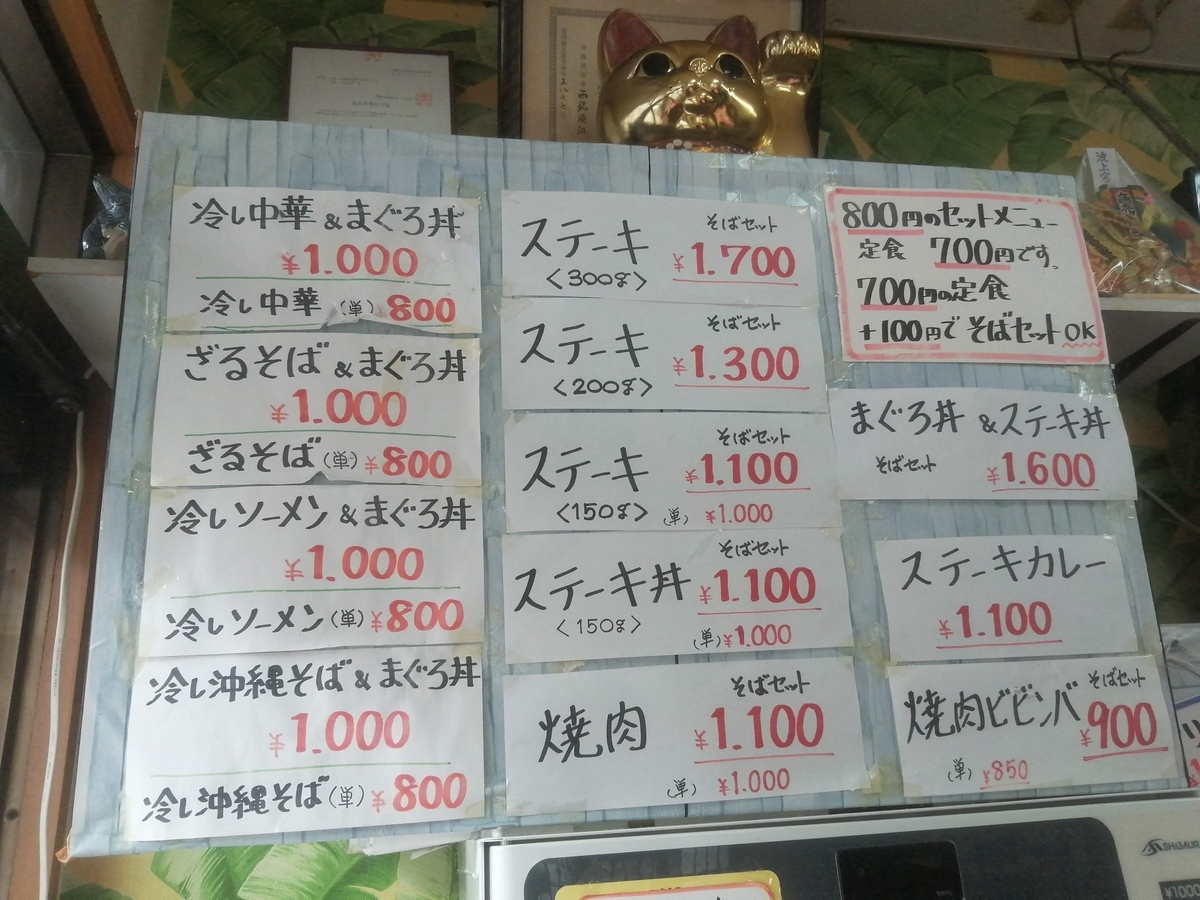 冷し中華&まぐろ丼
¥1.000
冷し中華(単)¥800
ざるそば&まぐろ丼
¥1.000
ざるそば(単)¥800
冷しソーメン&まぐろ丼
¥1.000
冷しソーメン(単)¥800
冷し沖縄そば&まぐろ丼
¥1.000
冷し沖縄そば(単)¥800
ステーキ そばセット
<300g> ¥1.700
ステーキ そばセット
<200g> ¥1.300
ステーキ そばセット
¥1.100
<150g> (単) ¥1.000
ステーキ丼 そばセット
¥1.100
<150g> (単)¥1.000
焼肉 そばセット
¥1.100
(単) ¥1.000
800円のセットメニュー
定食 700円です。
700円の定食
+100円でそばセットOK
まぐろ丼&ステーキ丼
そばセット ¥1.600
ステーキカレー
¥1.100
焼肉ビビンバ そばセット
¥900
(単) ¥850